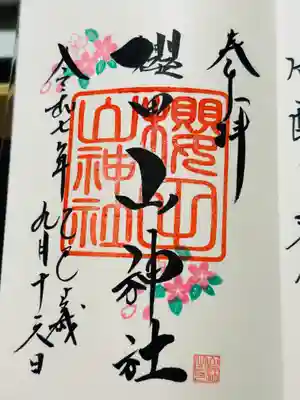 奉拝
櫻山神社
櫻山神社
令和七年 乙巳歳
九月十六日